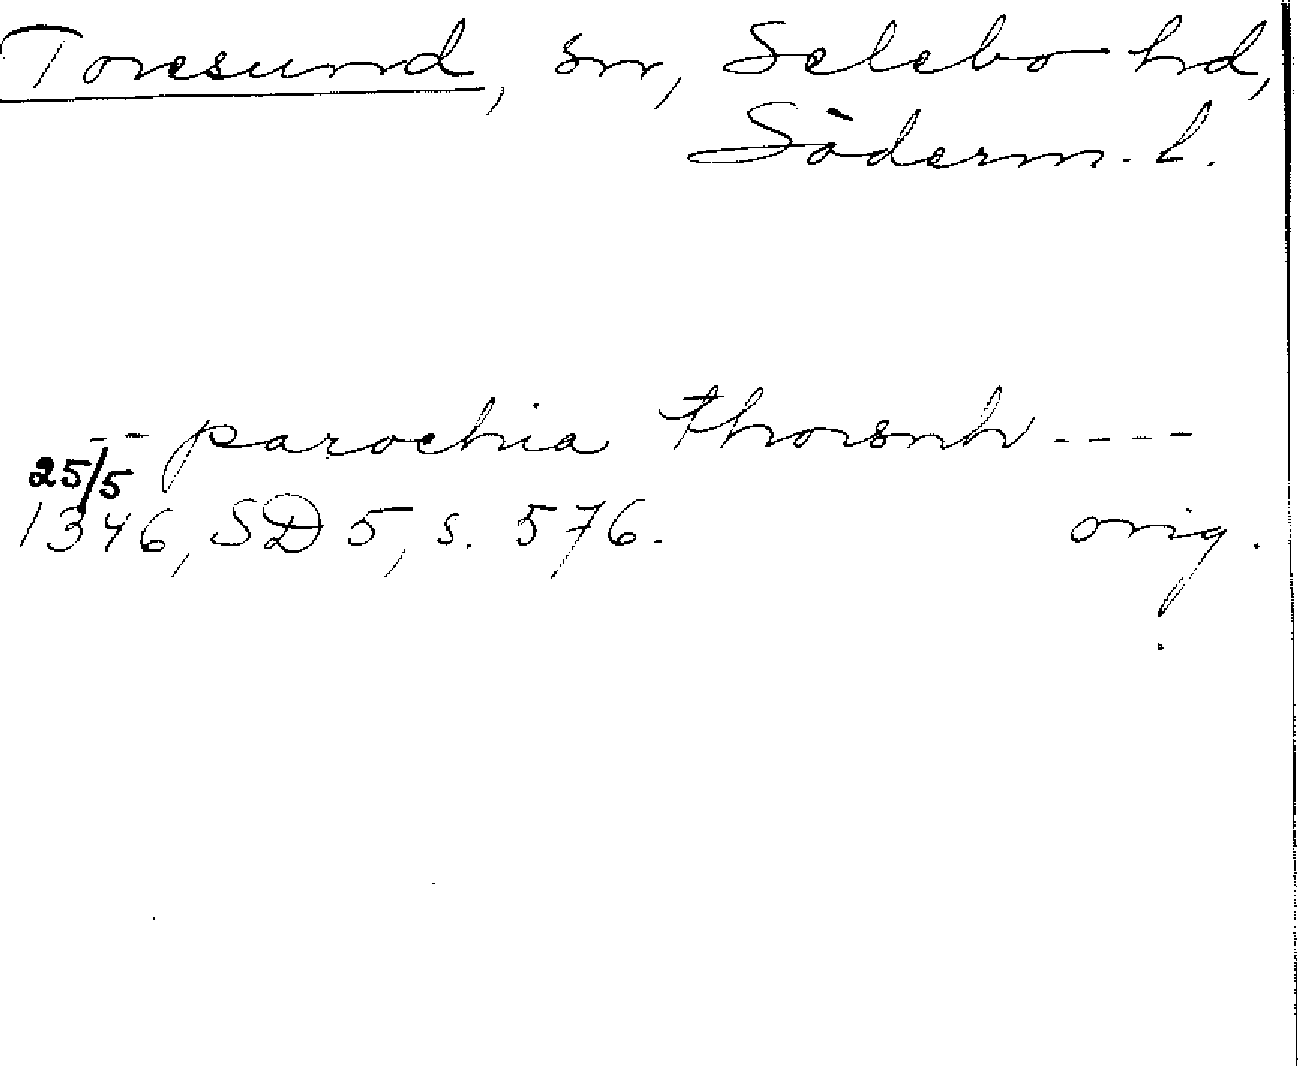 Toresund, sn, Selebo hd,
Söderm. l.
-- parochia ----
25/5
1346, SD 5, s. 576. orig.